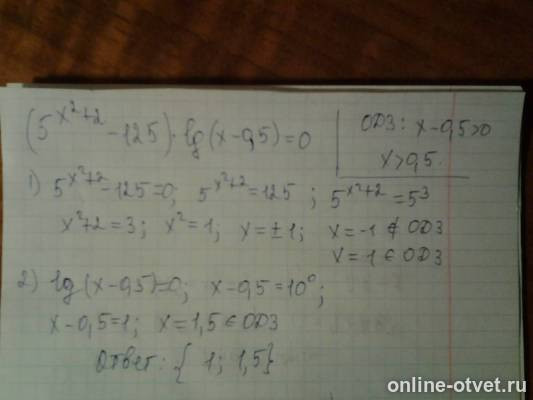 (5^{x²+2} - 125) · lg(x - 0,5) = 0
ОДЗ: x - 0,5 > 0
x > 0,5.
1) 5^{x²+2} - 125 = 0; 5^{x²+2} = 125; 5^{x²+2} = 5³
x²+2 = 3; x² = 1; x = ±1; x = -1 ∉ ОДЗ
x = 1 ∈ ОДЗ
2) lg(x - 0,5) = 0; x - 0,5 = 10⁰;
x - 0,5 = 1; x = 1,5 ∈ ОДЗ
Ответ: {1; 1,5}
online-otvet.ru